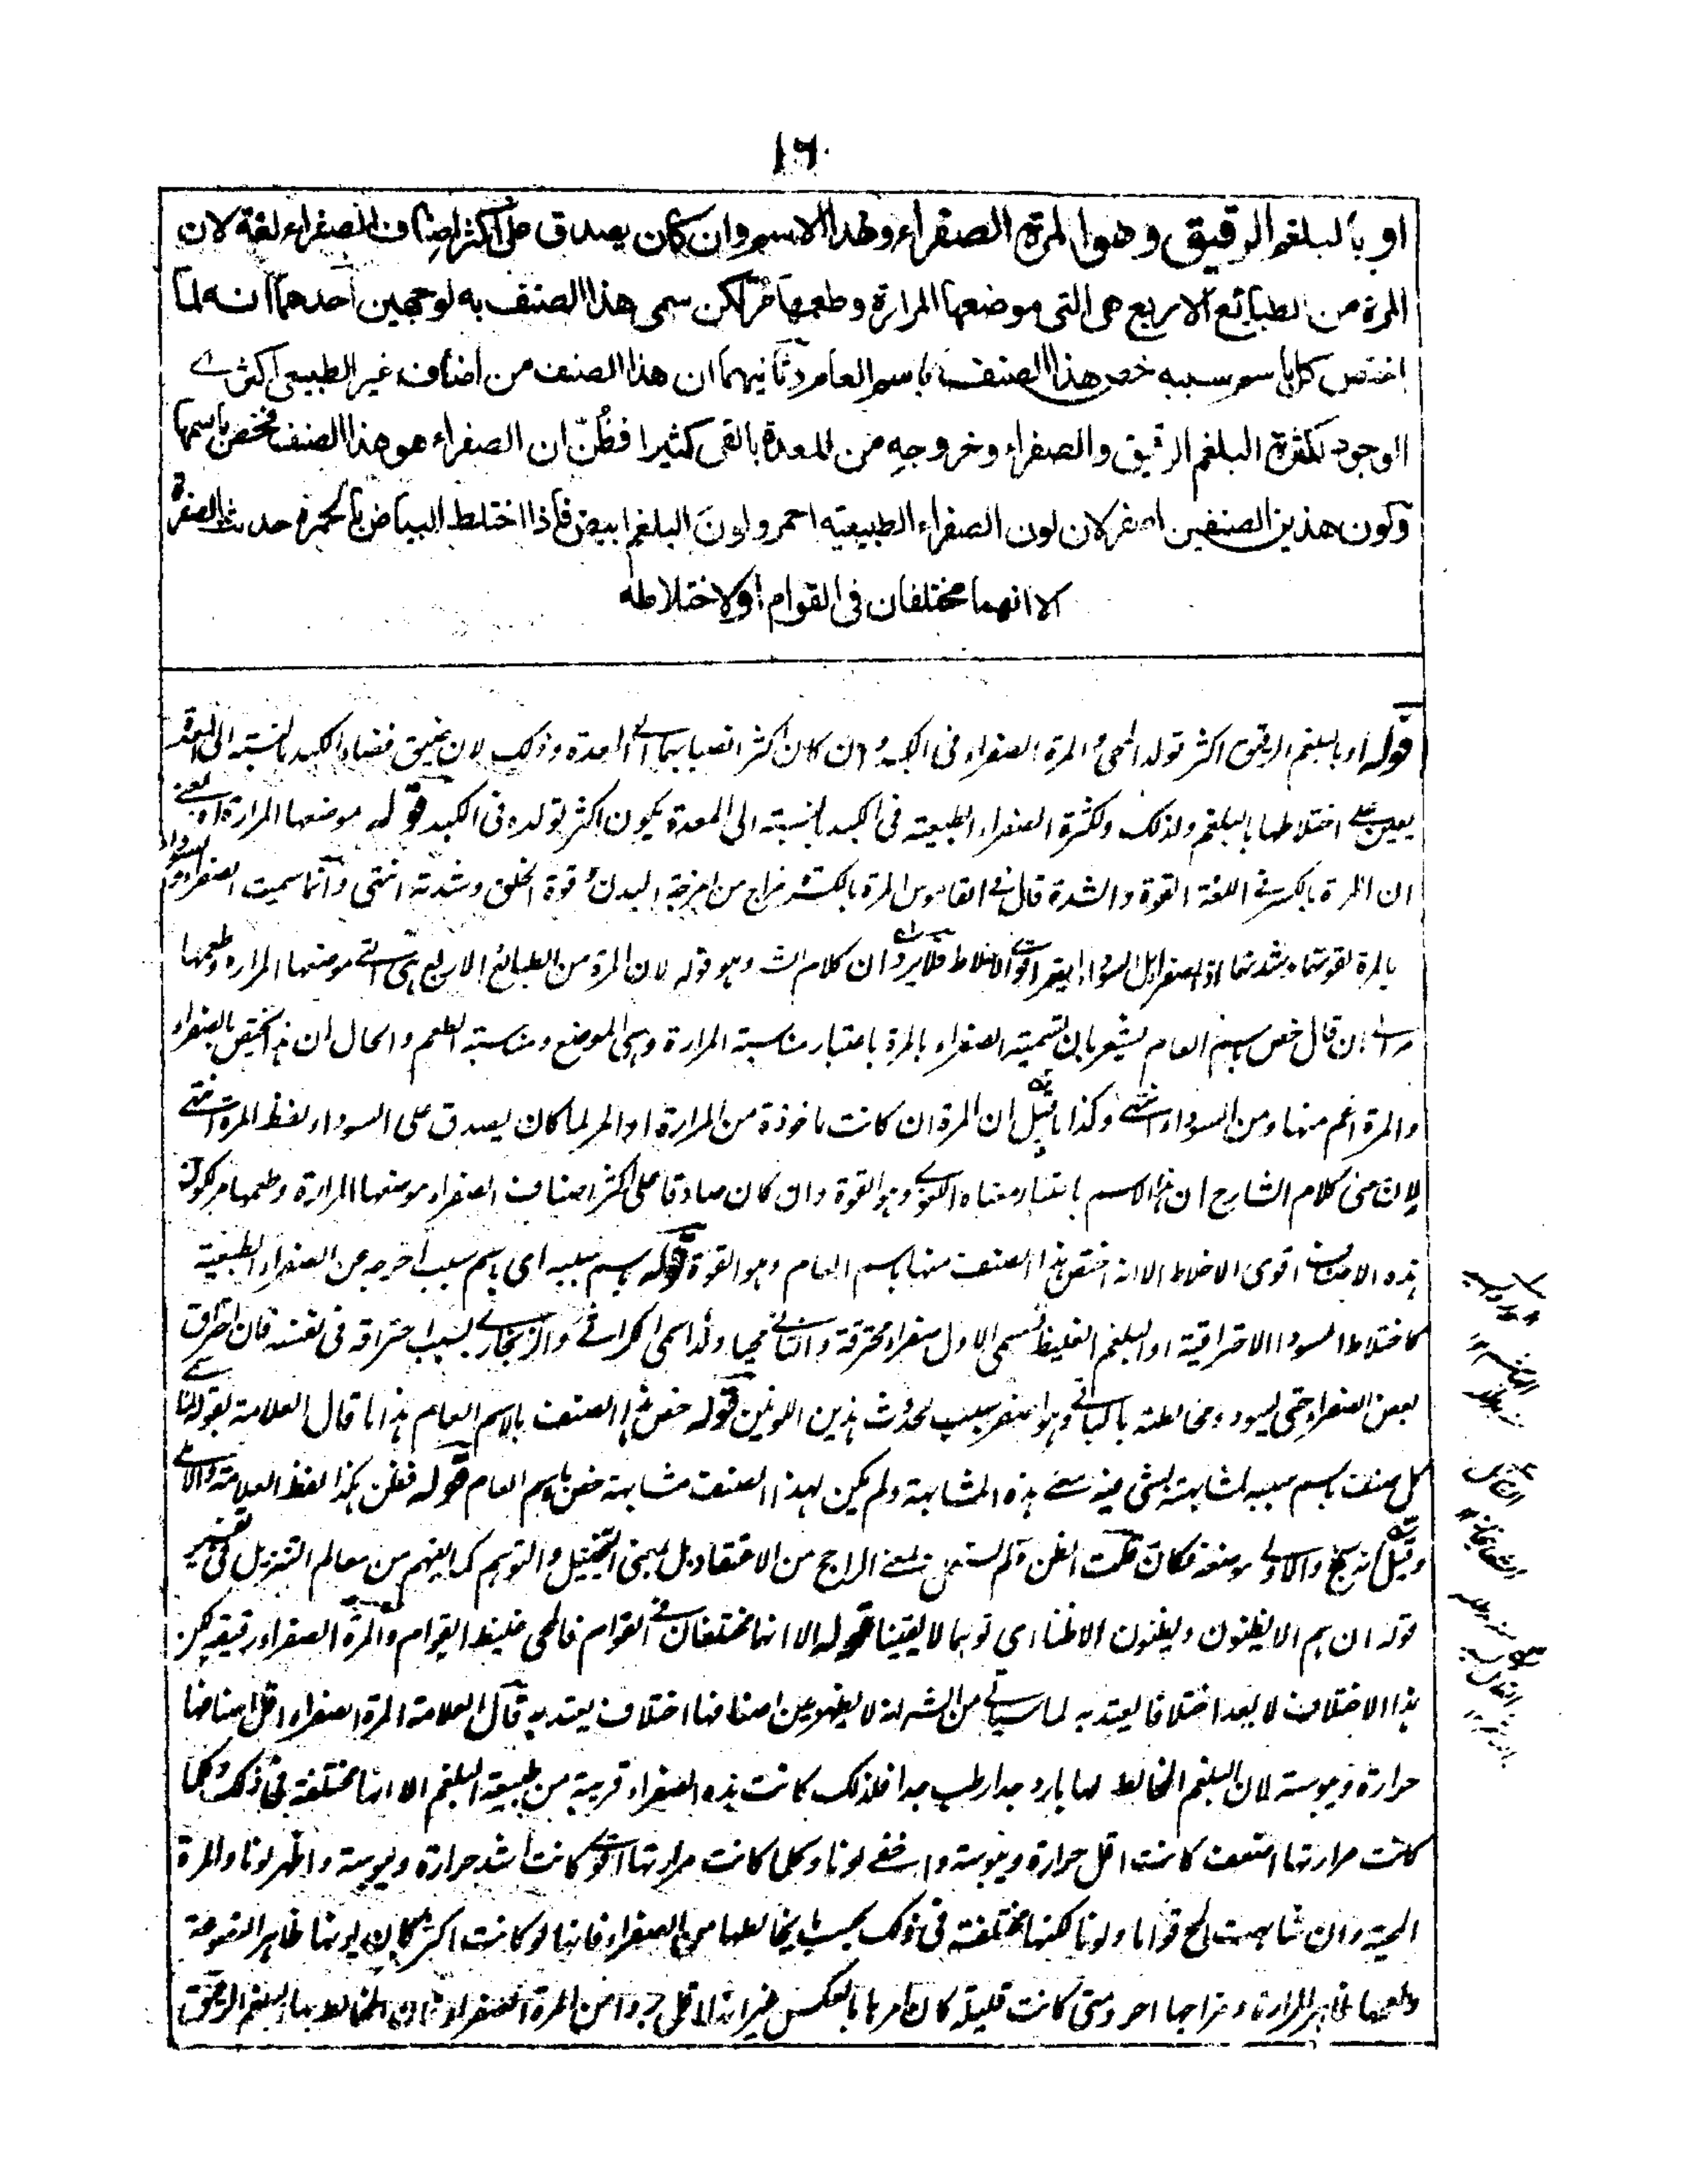 ١٦٠
او بالبلغم الرقيق وهو المرة الصفراء وهذا الاسم وان كان يصدق على اكثر اصناف الصفراء لغة لان
المرة من الطبائع الاربع هى التى موضعها المرارة وطعمها مر لكن سمى هذا الصنف به لوجهين احدهما انه لما
اختص كل باسم سببه خص هذا الصنف باسم العام وثانيهما ان هذا الصنف من اصناف غير الطبيعى اكثرے
الوجود لكثرة البلغم الرقيق والصفراء وخروجه من المعدة بالقى كثيرا فظُنّ ان الصفراء هو هذا الصنف فخص باسمها
وكون هذين الصنفين اصفر لان لون الصفراء الطبيعيه احمر ولون البلغم ابيض فاذا اختلط البياض بالحمرة حدث الصفرة
الا انهما مختلفان فى القوام او لاختلاطه
قوله او بالبلغم الرقيق اكثر تولد المحى والمرة الصفراء فى الكبد وان كان اكثر انصبابهما الى المعدة وذلك لان ضيق فضاء الكبد بالنسبته الى المعدة
يعين على اختلاطها بالبلغم ولذلك ولكثرة الصفراء الطبيعته فى الكبد بالنسبته الى المعدة يكون اكثر تولده فى الكبد قوله موضعها المرارة اه يعنے
ان المرة بالكسر فى اللغة القوة والشدة قال فى القاموس المرة بالكسر مزاج من امزجة البدن وقوة الخلق وشدته انتهى وانما سميت الصفراء والسوداء
بالمرة لقوتهما وشدتهما اذ الصفراء بل السوداء ايضا اقوى الاخلاط فلا يرد ان كلام الشـ وهو قوله لان المرة من الطبائع الاربع هى التے موضعها المراره وطعمها
مر الے ان قال خص باسم العام يشعر بان تسمية الصفراء بالمرة باعتبار مناسبة المرارة وهى الموضع ومناسبة الطعم والحال ان هذا يختص بالصفراء
والمرة اعم منها ومن السوداء انتهے وكذا ما قيل ان المرة ان كانت ماخوذة من المرارة او المر لما كان يصدق على السوداء لفظ المرة انتهے
لان معنى كلام الشارح ان هذا الاسم باعتبار معناه اللغوے وهو القوة وان كان صادقا على اكثر اصناف الصفراء موضعها المرارة وطعمها مر لكون
هذه الاصناف اقوى الاخلاط الا انه اختص هذا الصنف منها باسم العام وهو القوة قوله باسم سببه اى باسم سبب اخرجه عن الصفراء الطبعية
كاختلاط السوداء الاحتراقية او البلغم الغليظ فسمى الاول صفراء محترقة والثانے محيا ولذا سمى الكراثے والزنجارے بسبب احتراقه فى نفسه فان احترق
بعض الصفراء حتى يسود ومخالطته بالباقے وهو اصفر سبب لحدوث هذين اللونين قوله خص هذا الصنف بالاسم العام هذا ما قال العلامة بقوله لما سمے
كل صنف باسم سببه لمشابهته لشى فيه معنے هذه المشابهة ولم يكن لهذا الصنف مشابهة خص باسم العام قوله فظن هكذا لفظ العلامة والآملے
موضعه فكان قلت الظن لم يستعمل بمعنے الراجح من الاعتقاد بل بمعنى التخييل والتوهم كما يفهم من معالم التنزيل فى تفسير
قوله ان هم الا يظنون ويظنون الا ظنا اى توهما لا يقينا قوله الا انهما مختلفان فى القوام فالمحى غليظ القوام والمرة الصفراء رقيقه لكن
هذا الاختلاف لا يعد اختلافا يعتد به لما سياتے من الشـ انه لا يظهر بين اصنافها اختلاف يعتد به قال العلامة المرة الصفراء اقل اصنافها
حرارة ويبوسته لان البلغم المخالط لها بارد جدا رطب جدا فلذلك كانت هذه الصفراء قريبة من طبيعة البلغم الا انها مختلفة فى ذلك وكلما
كانت مرارتها اضعف كانت اقل حرارة ويبوسته واخفے لونا وكلما كانت مرارتها اقوے كانت اشد حرارة ويبوسته واظهر لونا والمرة
المحية وان شابهت المح قواما ولونا لكنها مختلفة فى ذلك بحسب ما يخالطها من الصفراء فانها لو كانت اكثر كان لونها ظاهر النصوعة
وطعمها ظاهر المرارة ومزاجها احر ومتى كانت قليلة كان امرها بالعكس غير انها لا اقل بردا من المرة الصفراء لان المخالط بها البلغم الرقيق